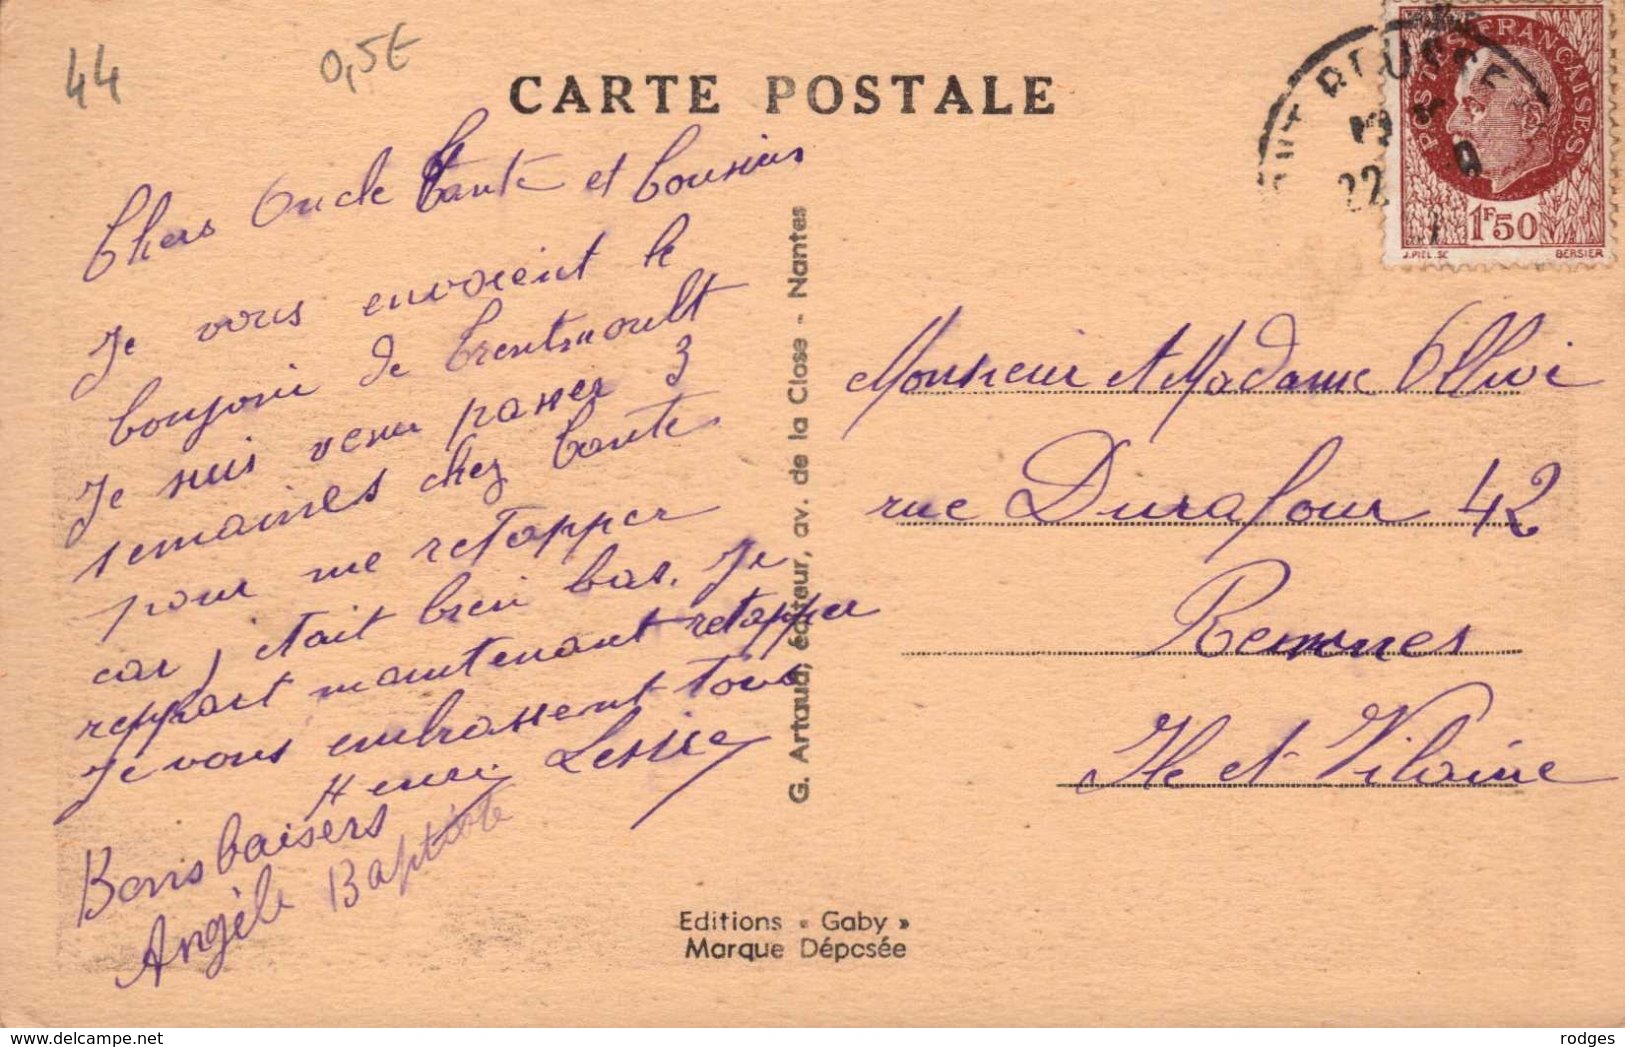 44
0,5€
CARTE POSTALE
PONT ROUSSEAU
22
POSTES FRANÇAISES
1F50
J.PIEL.SC
BERSIER
Chers Oncle Tante et Cousins
Je vous envoient le
bonjour de Trentmoult
Je suis venu passer 3
semaines chez Tante
pour me retapper
car j était bien bas. Je
reppart maintenant retapper
Je vous embrassent tous
Henri
Bons baisers
Angèle Baptiste
G. Artaud, éditeur, av. de la Close - Nantes
Editions « Gaby »
Marque Déposée
Monsieur et Madame Ollivi
rue Durafour 42
Rennes
Ile et Vilaine
delcampe.net
rodges